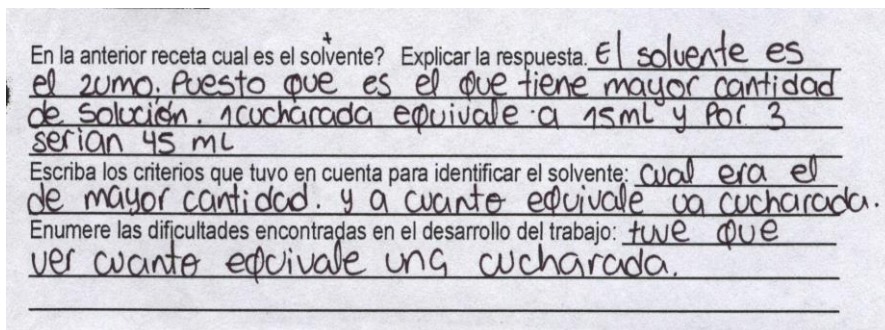 En la anterior receta cual es el solvente? Explicar la respuesta. El solvente es
el zumo. Puesto que es el que tiene mayor cantidad
de solución. 1 cucharada equivale a 15mL y Por 3
serian 45 mL
Escriba los criterios que tuvo en cuenta para identificar el solvente: cual era el
de mayor cantidad. y a cuanto equivale ua cucharada.
Enumere las dificultades encontradas en el desarrollo del trabajo: tuve que
ver cuanto equivale una cucharada.